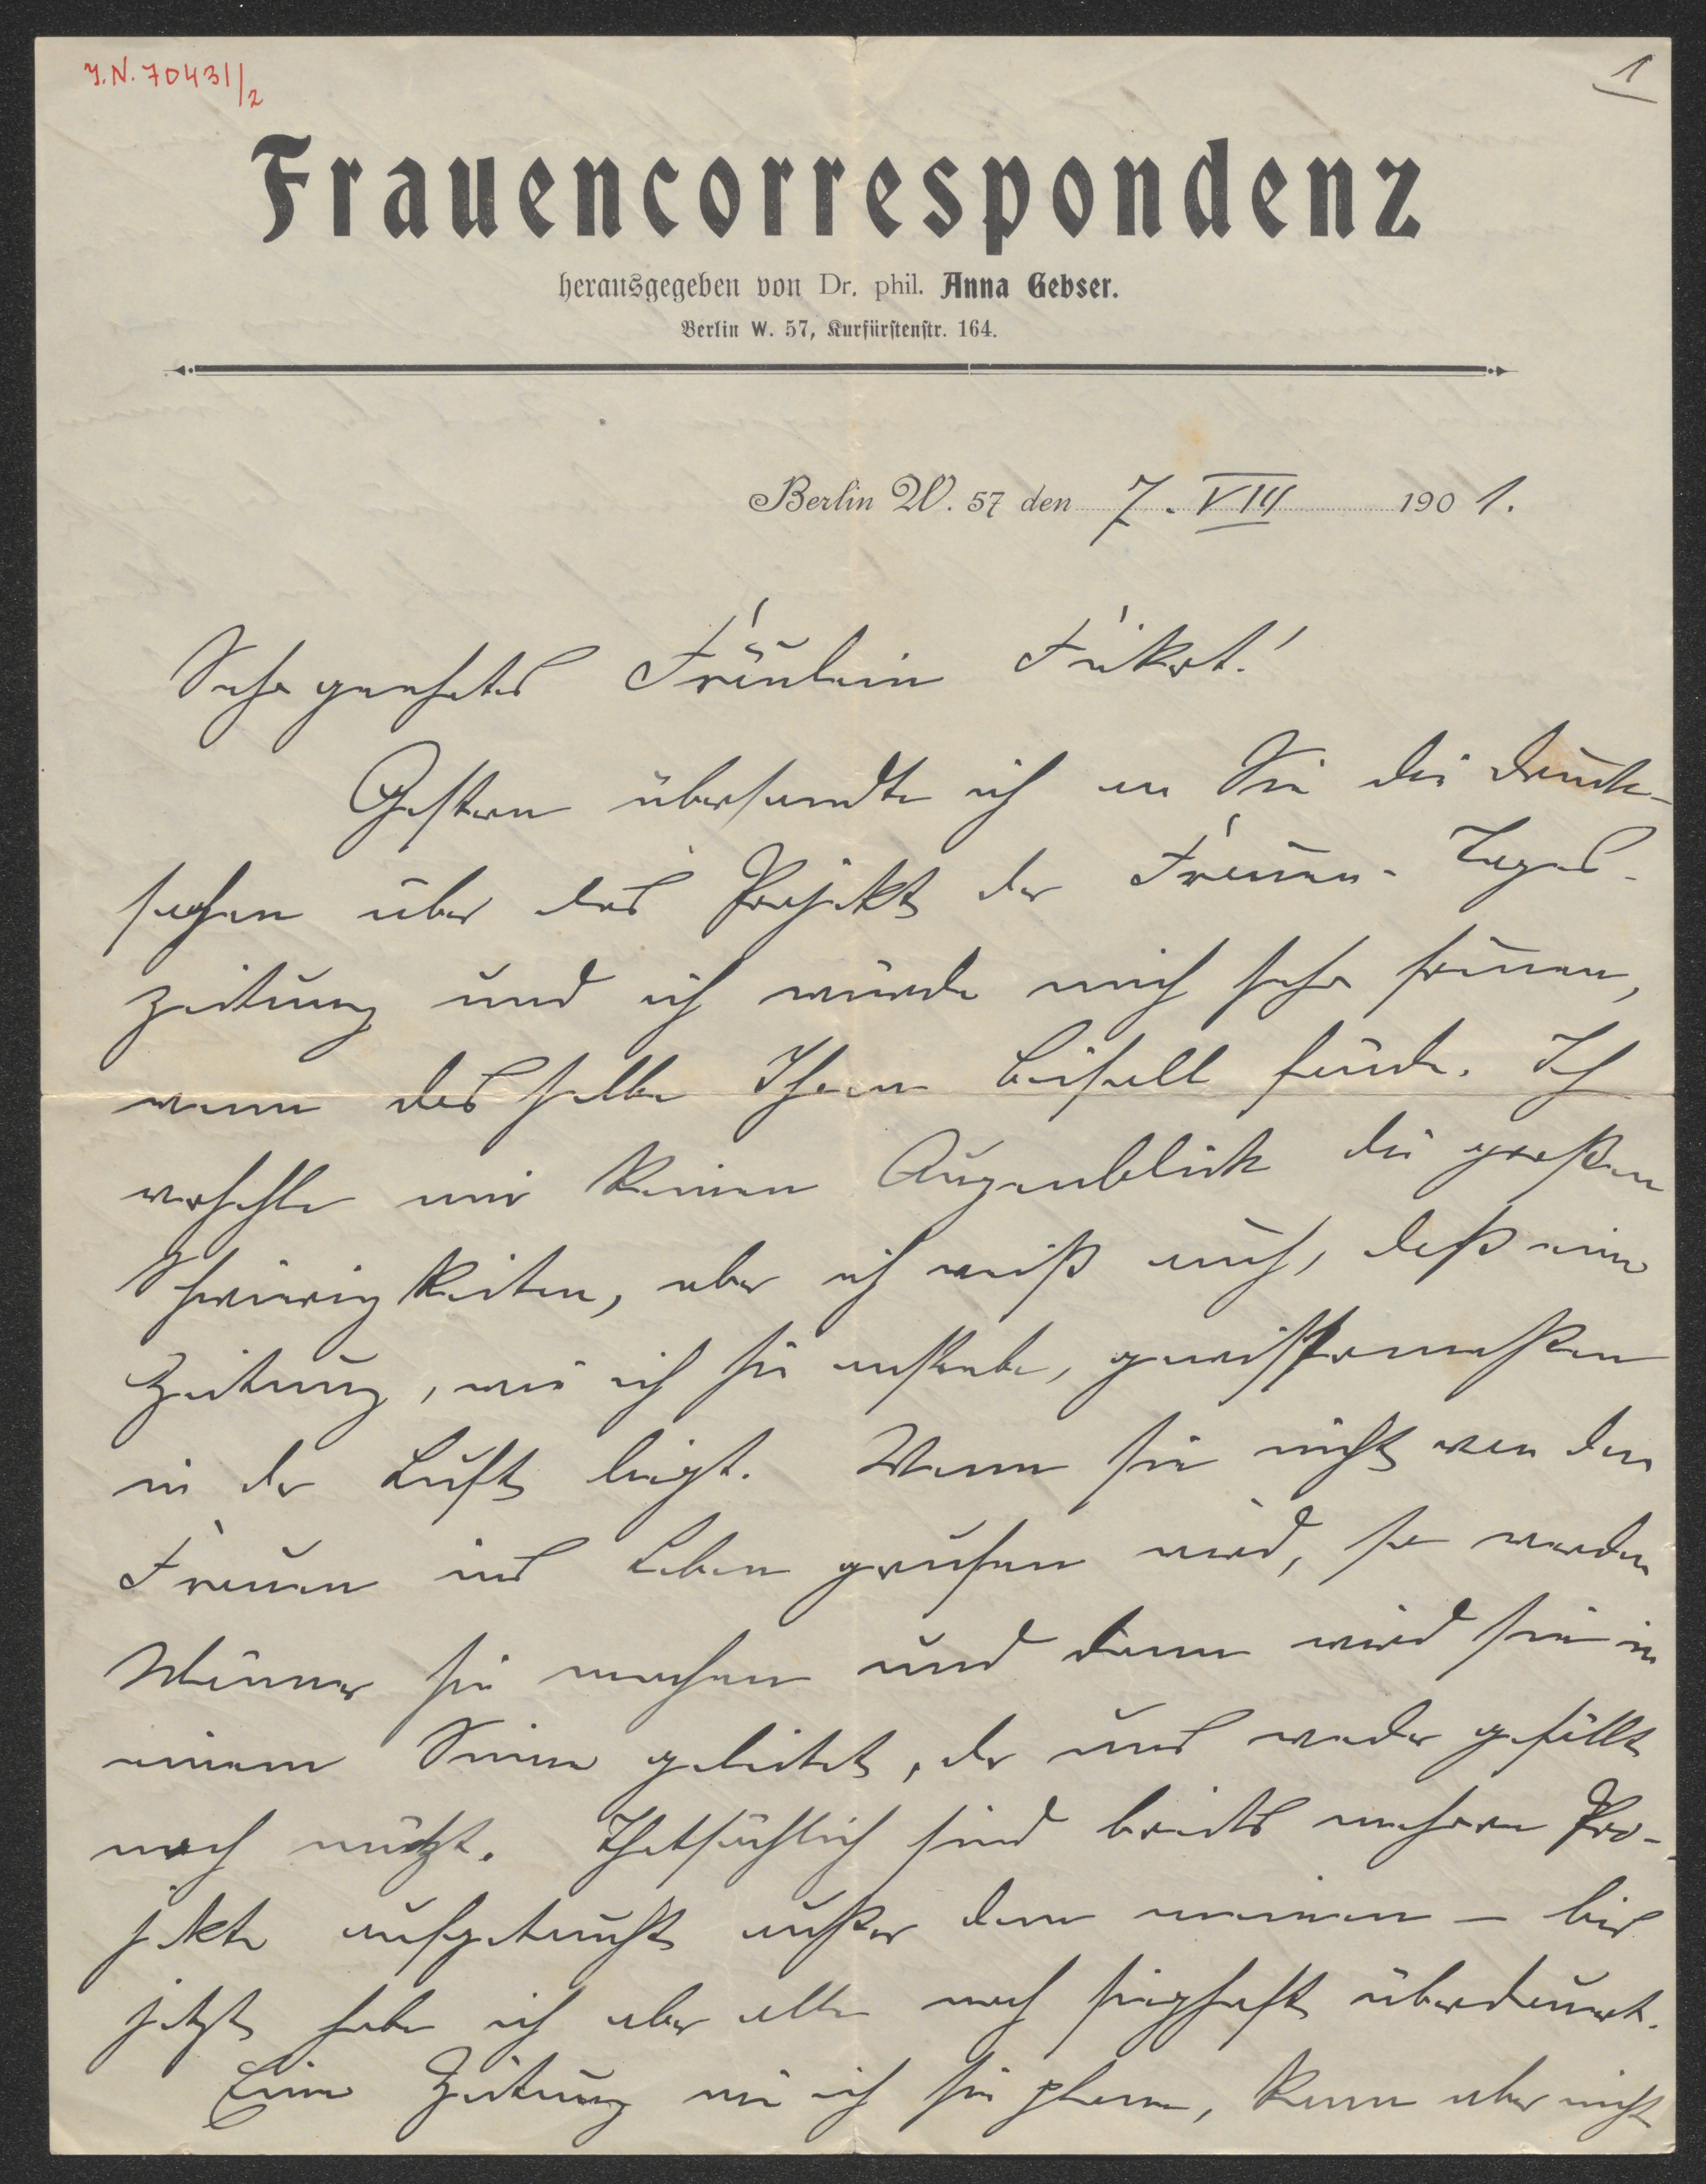 J.N. 70431/2
1
Frauencorrespondenz
herausgegeben von Dr. phil. Anna Gebser.
Berlin W. 57, Kurfürstenstr. 164.
Berlin W. 57 den 7. VIII 1901.
Sehr geehrtes Fräulein Fickert!
Gestern übersandte ich an Sie die Druck-
sachen über das Projekt der Frauen-Tages-
zeitung und ich würde mich sehr freuen,
wenn dasselbe Ihren Beifall fände. Ich
verhehle mir keinen Augenblick die großen
Schwierigkeiten, aber ich weiß auch, daß eine
Zeitung, wie ich sie anstrebe, gewissermaßen
in der Luft liegt. Wenn sie nicht von den
Frauen ins Leben gerufen wird, so werden
Männer sie machen und dann wird sie in
einem Sinne geleitet, der uns weder gefällt
noch nützt. Thatsächlich sind bereits mehrere Pro-
jekte aufgetaucht außer dem meinen – bis
jetzt habe ich aber alle noch sieghaft überdauert.
Eine Zeitung wie ich sie plane, kann aber nicht